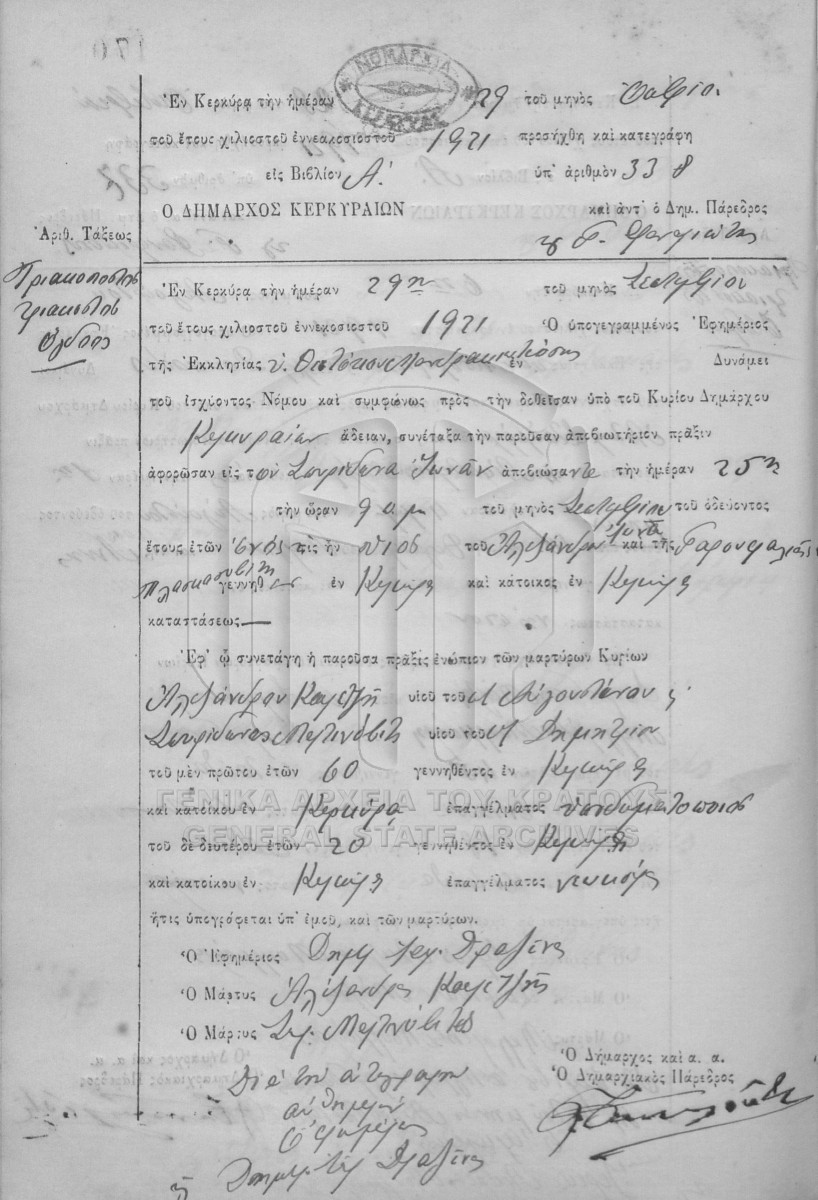 ΝΟΜΑΡΧΙΑ
ΚΕΡΚΥΡΑΣ
Ἐν Κερκύρᾳ τὴν ἡμέραν 29 τοῦ μηνὸς
τοῦ ἔτους χιλιοστοῦ ἐννεακοσιοστοῦ 1921 προσήχθη καὶ κατεγράφη
εἰς Βιβλίον Α΄. ὑπ' ἀριθμὸν 338
Ο ΔΗΜΑΡΧΟΣ ΚΕΡΚΥΡΑΙΩΝ καὶ ἀντ' ὁ Δημ. Πάρεδρος
Ἀριθ. Τάξεως
Τριακοσιοστὸς
τριακοστὸς
ὄγδοος
Ἐν Κερκύρᾳ τὴν ἡμέραν 29η τοῦ μηνὸς Σεπτεμβρίου
τοῦ ἔτους χιλιοστοῦ ἐννεκοσιοστοῦ 1921 Ὁ ὑπογεγραμμένος Ἐφημέριος
τῆς Ἐκκλησίας ὑ. Θεοτόκου Μανδρακιωτίσσης ἐν Δυνάμει
τοῦ ἰσχύοντος Νόμου καὶ συμφώνως πρὸς τὴν δοθεῖσαν ὑπὸ τοῦ Κυρίου Δημάρχου
Κερκυραίων ἄδειαν, συνέταξα τὴν παροῦσαν ἀποβιωτήριον πρᾶξιν
ἀφορῶσαν εἰς τὸν Σπυρίδωνα ἀποβιώσαντα τὴν ἡμέραν 25η
τὴν ὥραν 9 α μ τοῦ μηνὸς Σεπτεμβρίου τοῦ ὁδεύοντος
ἔτους ἐτῶν ἑνὸς τὶς ἦν υἱὸς τοῦ Ἀλεξάνδρου καὶ τῆς Γαρουφαλιᾶς
γεννηθ ἐν Κερκύρᾳ καὶ κάτοικος ἐν Κερκύρᾳ
καταστάσεως —
Ἐφ' ᾧ συνετάγη ἡ παροῦσα πρᾶξις ἐνώπιον τῶν μαρτύρων Κυρίων
Ἀλεξάνδρου υἱοῦ τοῦ Αὐγουστίνου
Σπυρίδωνος Μαρτινόβιτς υἱοῦ τοῦ Δημητρίου
τοῦ μὲν πρώτου ἐτῶν 60 γεννηθέντος ἐν Κερκύρᾳ
καὶ κατοίκου ἐν Κερκύρᾳ ἐπαγγέλματος ὑποδηματοποιὸς
τοῦ δὲ δευτέρου ἐτῶν 20 γεννηθέντος ἐν Κερκύρᾳ
καὶ κατοίκου ἐν Κερκύρᾳ ἐπαγγέλματος
ἥτις ὑπογράφεται ὑπ' ἐμοῦ, καὶ τῶν μαρτύρων.
Ὁ Ἐφημέριος Δημ
Ὁ Μάρτυς Ἀλέξανδρος
Ὁ Μάρτυς Σπ. Μαρτινόβιτς
Ὁ Δήμαρχος καὶ α. α.
Ὁ Δημαρχιακὸς Πάρεδρος
Διὰ τὴν ἀντιγραφὴν
αὐθημερόν
Ὁ Ἐφημέριος
ΓΕΝΙΚΑ ΑΡΧΕΙΑ ΤΟΥ ΚΡΑΤΟΥΣ
GENERAL STATE ARCHIVES